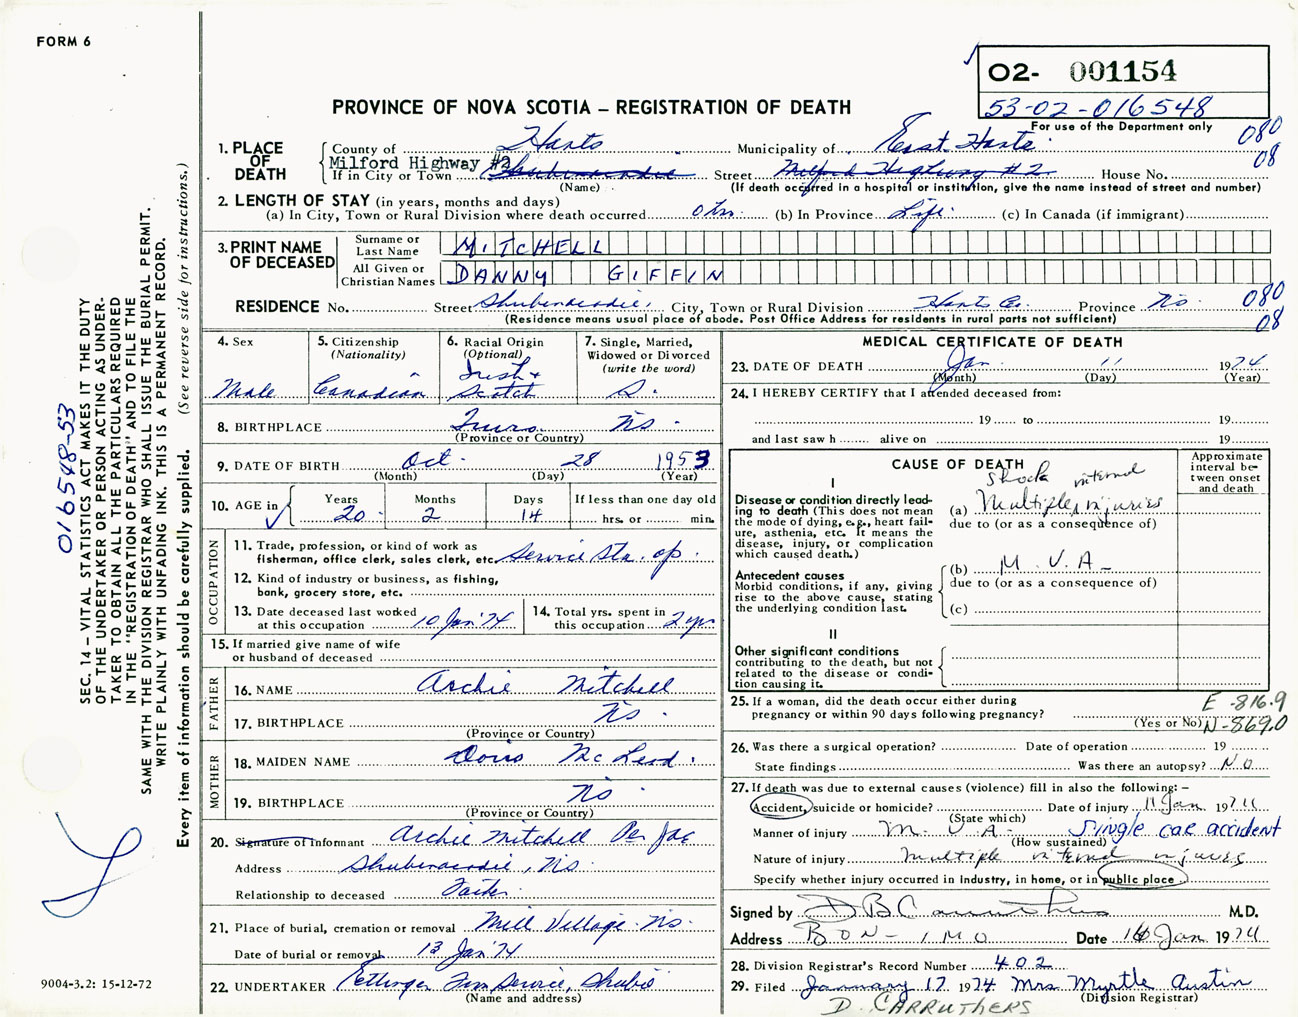 FORM 6
O2- 001154
53-02-016548
For use of the Department only
PROVINCE OF NOVA SCOTIA – REGISTRATION OF DEATH
080
08
1. PLACE OF DEATH
County of Hants Municipality of East Hants
Milford Highway #2
If in City or Town Shubenacadie Street Milford Highway #2 House No.
(Name) (If death occurred in a hospital or institution, give the name instead of street and number)
2. LENGTH OF STAY (in years, months and days)
(a) In City, Town or Rural Division where death occurred 0 hrs. (b) In Province Life. (c) In Canada (if immigrant)
3. PRINT NAME OF DECEASED
Surname or Last Name MITCHELL
All Given or Christian Names DANNY GIFFIN
RESIDENCE No. Street Shubenacadie, City, Town or Rural Division Hants Co. Province NS. 080
(Residence means usual place of abode. Post Office Address for residents in rural parts not sufficient) 08
4. Sex
Male
5. Citizenship
(Nationality)
Canadian
6. Racial Origin
(Optional)
Irish +
Scotch
7. Single, Married,
Widowed or Divorced
(write the word)
S.
8. BIRTHPLACE Truro NS.
(Province or Country)
9. DATE OF BIRTH Oct. 28 1953
(Month) (Day) (Year)
10. AGE in
Years Months Days If less than one day old
20 2 14 hrs. or min.
OCCUPATION
11. Trade, profession, or kind of work as
fisherman, office clerk, sales clerk, etc. Service Sta. op.
12. Kind of industry or business, as fishing,
bank, grocery store, etc.
13. Date deceased last worked
at this occupation 10 Jan '74
14. Total yrs. spent in
this occupation 2 yrs
15. If married give name of wife
or husband of deceased
FATHER
16. NAME Archie Mitchell
17. BIRTHPLACE NS.
(Province or Country)
MOTHER
18. MAIDEN NAME Doris McLeod.
19. BIRTHPLACE NS.
(Province or Country)
20. Signature of Informant Archie Mitchell Per
Address Shubenacadie, NS.
Relationship to deceased Father.
21. Place of burial, cremation or removal Mill Village NS.
Date of burial or removal 13 Jan '74
22. UNDERTAKER Ettinger Service, Shubie
(Name and address)
MEDICAL CERTIFICATE OF DEATH
23. DATE OF DEATH Jan. 11 1974
(Month) (Day) (Year)
24. I HEREBY CERTIFY that I attended deceased from:
19 to 19
and last saw h alive on 19
CAUSE OF DEATH
Approximate interval between onset and death
I
Disease or condition directly leading to death (This does not
mean the mode of dying, e.g., heart failure, asthenia, etc. It means the
disease, injury, or complication
which caused death.)
Shock internal
(a) Multiple injuries
due to (or as a consequence of)
Antecedent causes
Morbid conditions, if any, giving
rise to the above cause, stating
the underlying condition last.
(b) M. V. A.
due to (or as a consequence of)
(c)
II
Other significant conditions
contributing to the death, but not
related to the disease or condition causing it.
25. If a woman, did the death occur either during
pregnancy or within 90 days following pregnancy?
(Yes or No)
E-816.9
N-869.0
26. Was there a surgical operation? Date of operation 19
State findings Was there an autopsy? NO
27. If death was due to external causes (violence) fill in also the following: –
Accident, suicide or homicide? Date of injury 11 Jan 1974
(State which)
Manner of injury M. V. A. Single car accident
(How sustained)
Nature of injury Multiple internal injuries
Specify whether injury occurred in Industry, in home, or in public place
Signed by D B Carruthers M.D.
Address Date 16 Jan 1974
28. Division Registrar's Record Number 402
29. Filed January 17 1974 Mrs Myrtle Austin
(Division Registrar)
D. CARRUTHERS
016548-53
SEC. 14 – VITAL STATISTICS ACT MAKES IT THE DUTY
OF THE UNDERTAKER OR PERSON ACTING AS UNDERTAKER
TO OBTAIN ALL THE PARTICULARS REQUIRED
IN THE "REGISTRATION OF DEATH" AND TO FILE THE
SAME WITH THE DIVISION REGISTRAR WHO SHALL ISSUE THE BURIAL PERMIT.
WRITE PLAINLY WITH UNFADING INK. THIS IS A PERMANENT RECORD.
Every item of information should be carefully supplied. (See reverse side for instructions.)
9004-3.2: 15-12-72